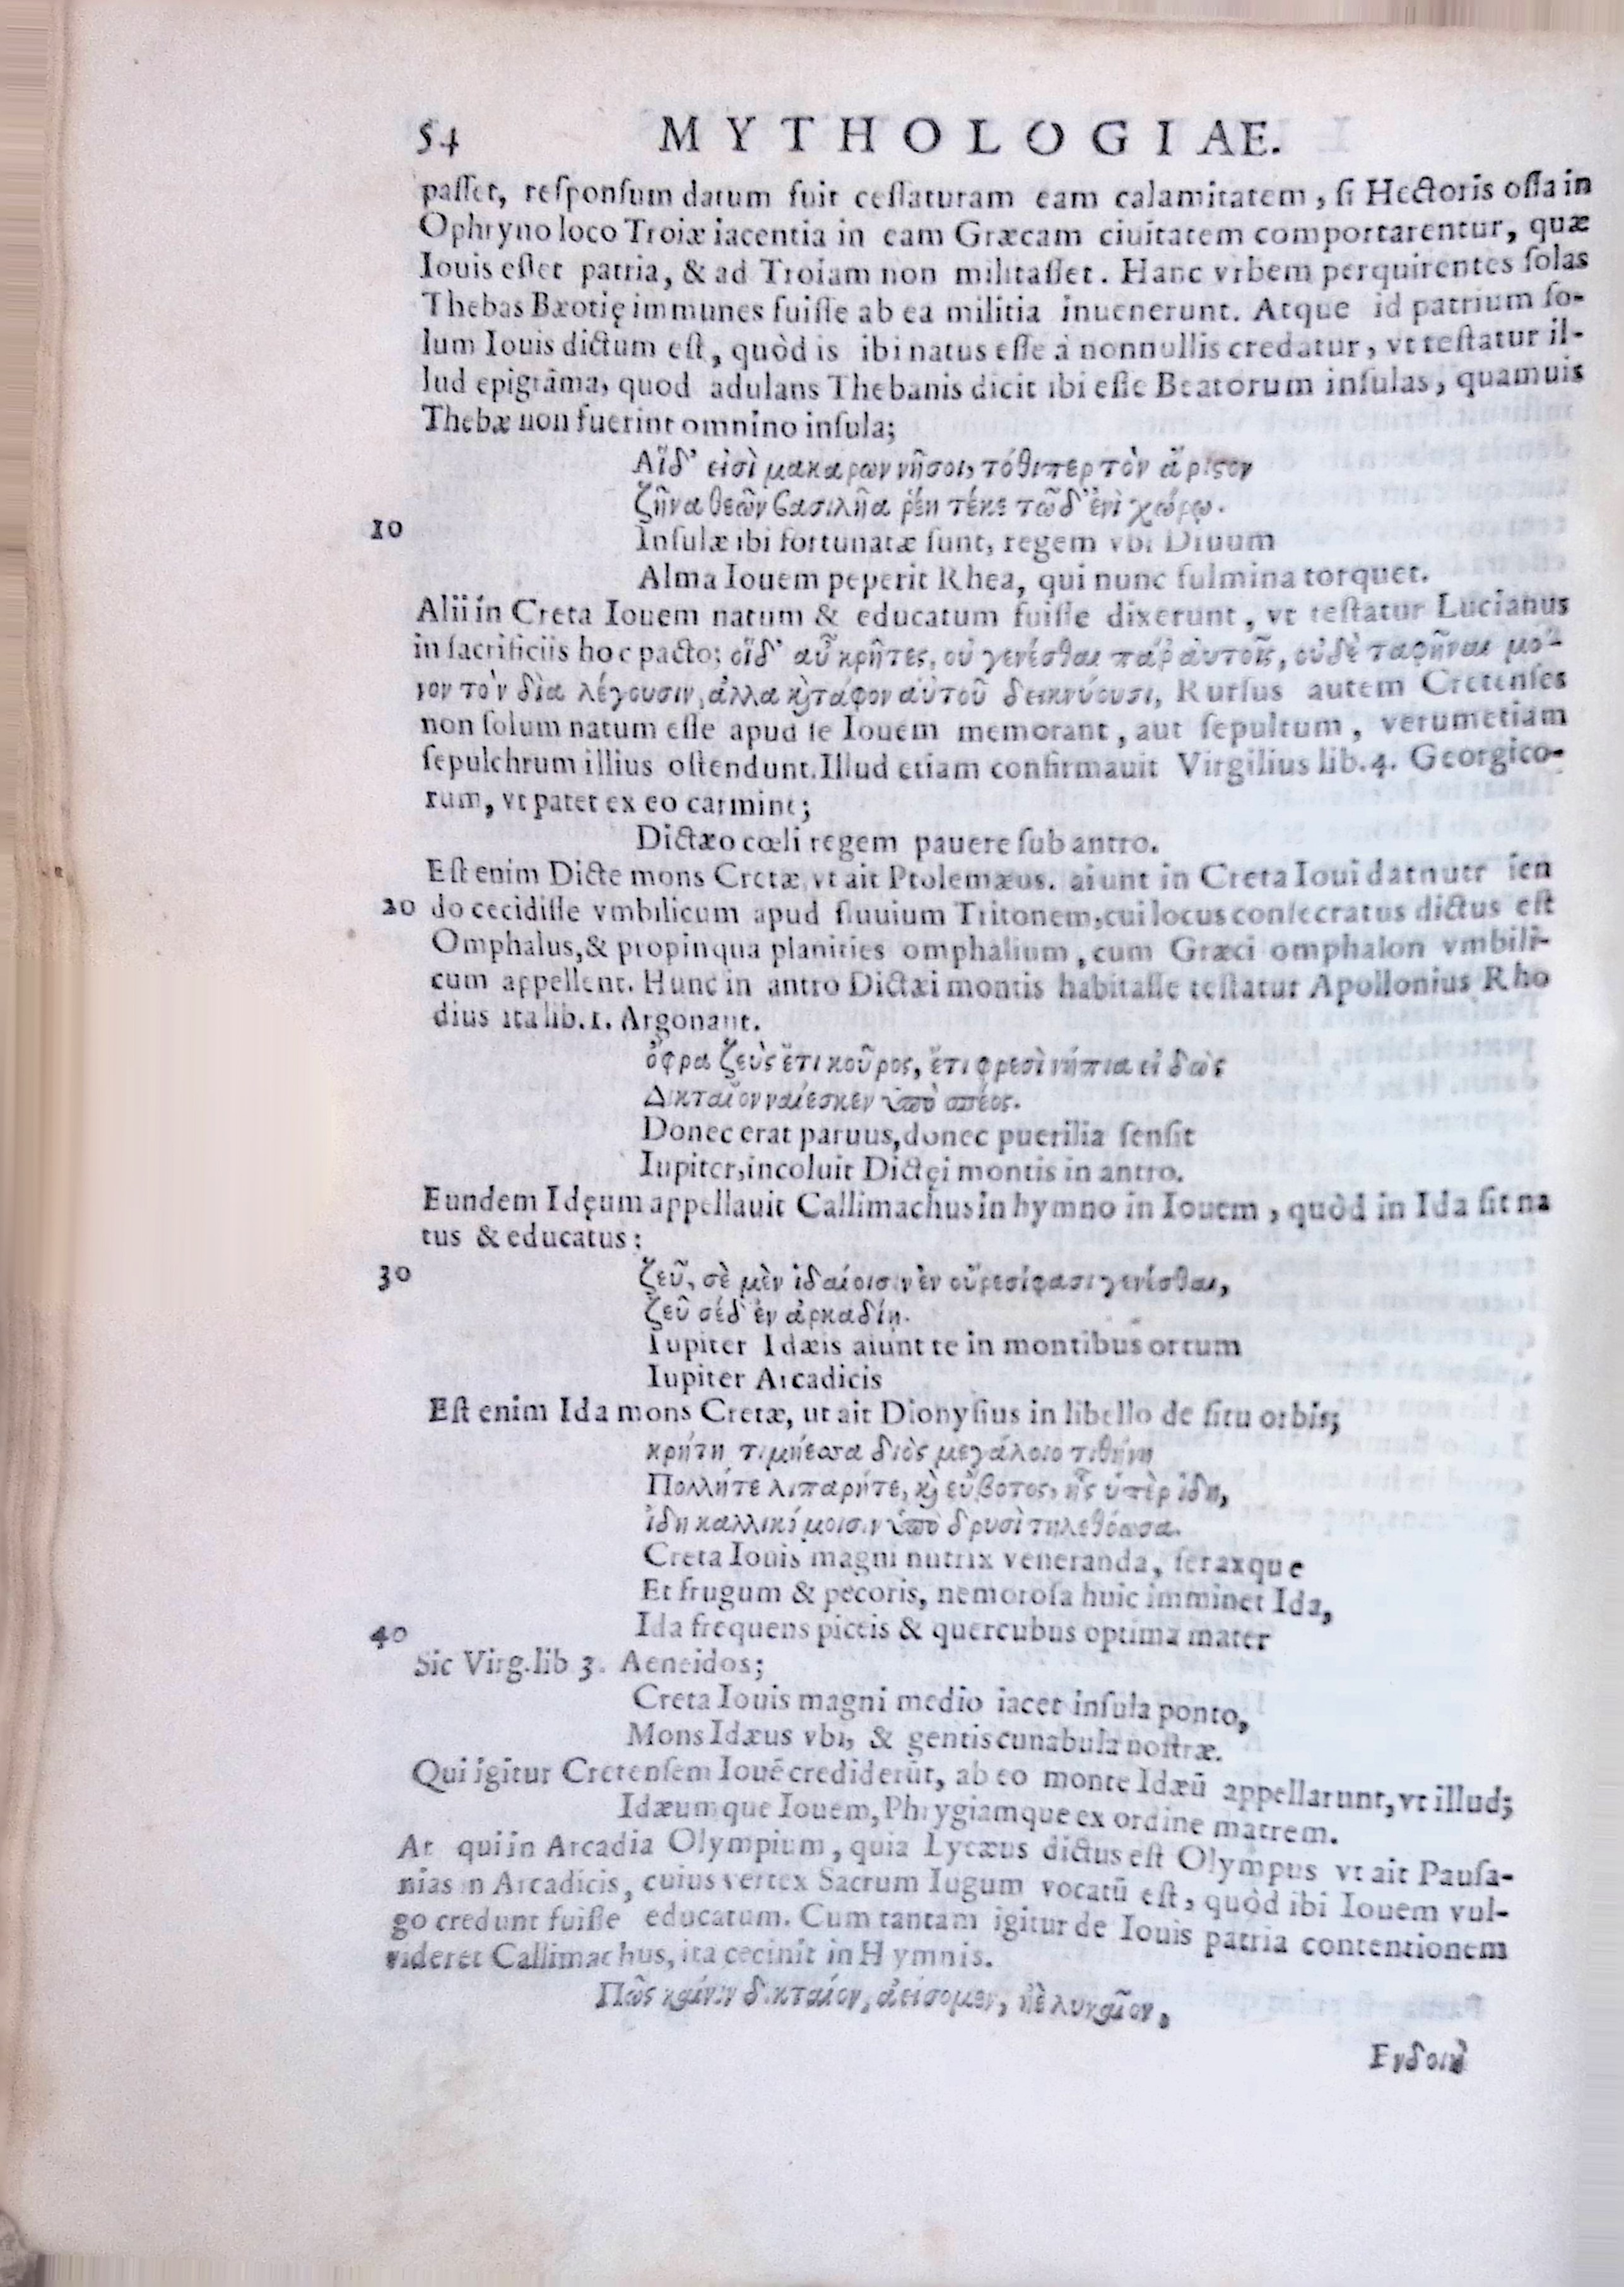 54 MYTHOLOGIAE.
paſſet, reſponſum datum fuit ceſſaturam eam calamitatem, ſi Hectoris oſſa in
Ophryno loco Troiæ iacentia in eam Græcam ciuitatem comportarentur, quæ
Iouis eſſet patria, & ad Troiam non militaſſet. Hanc vrbem perquirentes ſolas
Thebas Bæotię immunes fuiſſe ab ea militia inuenerunt. Atque id patrium ſo-
lum Iouis dictum eſt, quòd is ibi natus eſſe à nonnullis credatur, vt teſtatur il-
lud epigrāma, quod adulans Thebanis dicit ibi eſſe Beatorum inſulas, quamuis
Thebæ non fuerint omnino inſula;
Αἵδ' εἰσὶ μακάρων νῆσοι, τόθιπερ τὸν ἄριςον
ζῆνα θεῶν βασιλῆα ῥέη τέκε τῶδ' ἐνὶ χώρῳ.
10
Inſulæ ibi fortunatæ ſunt, regem vbi Diuum
Alma Iouem peperit Rhea, qui nunc fulmina torquet.
Alii in Creta Iouem natum & educatum fuiſſe dixerunt, vt teſtatur Lucianus
in ſacrificiis hoc pacto; οἵδ' αὖ κρῆτες, οὐ γενέσθαι παρ' αὐτοῖς, οὐδὲ ταφῆναι μό-
νον τὸν δία λέγουσιν, ἀλλα κỳ τάφον αὐτοῦ δεικνύουσι, Rurſus autem Cretenſes
non ſolum natum eſſe apud ſe Iouem memorant, aut ſepultum, verumetiam
ſepulchrum illius oſtendunt. Illud etiam confirmauit Virgilius lib. 4. Georgico-
rum, vt patet ex eo carmine;
Dictæo cœli regem pauere ſub antro.
Eſt enim Dicte mons Cretæ, vt ait Ptolemæus. aiunt in Creta Ioui dat nutr ien
20 do cecidiſſe vmbilicum apud fluuium Tritonem, cui locus conſecratus dictus eſt
Omphalus, & propinqua planities omphalium, cum Græci omphalon vmbili-
cum appellent. Hunc in antro Dictæi montis habitaſſe teſtatur Apollonius Rho
dius ita lib. 1. Argonaut.
ὄφρα ζεὺς ἔτι κοῦρος, ἔτι φρεσὶ νήπια εἰ δὼς
Δικταῖον ναίεσκεν ὑπὸ σπέος.
Donec erat paruus, donec puerilia ſenſit
Iupiter, incoluit Dictęi montis in antro.
Eundem Idęum appellauit Callimachus in hymno in Iouem, quòd in Ida ſit na
tus & educatus:
30
ζεῦ, σὲ μὲν ἰδαίοισιν ἐν οὔρεσίφασι γενέσθαι,
ζεῦ σέδ' ἐν ἀρκαδίῃ.
Iupiter Idæis aiunt te in montibus ortum
Iupiter Arcadicis
Eſt enim Ida mons Cretæ, ut ait Dionyſius in libello de ſitu orbis;
κρήτη τιμήεσσα διὸς μεγάλοιο τιθήνη
Πολλήτε λιπαρήτε, κỳ εὔβοτος, ἧς ὑπὲρ ἴδη,
ἴδη καλλικόμοισιν ὑπὸ δρυσὶ τηλεθόωσα.
Creta Iouis magni nutrix veneranda, feraxque
Et frugum & pecoris, nemoroſa huic imminet Ida,
Ida frequens piceis & quercubus optima mater
40
Sic Virg. lib 3. Aeneidos;
Creta Iouis magni medio iacet inſula ponto,
Mons Idæus vbi, & gentis cunabula noſtræ.
Qui igitur Cretenſem Iouē crediderūt, ab eo monte Idæū appellarunt, vt illud;
Idæumque Iouem, Phrygiamque ex ordine matrem.
At qui in Arcadia Olympium, quia Lycæus dictus eſt Olympus vt ait Pauſa-
nias in Arcadicis, cuius vertex Sacrum Iugum vocatū eſt, quòd ibi Iouem vul-
go credunt fuiſſe educatum. Cum tantam igitur de Iouis patria contentionem
videret Callimachus, ita cecinit in Hymnis.
Πῶς καίνιν δικταίον, ἀείσομεν, ἠὲ λυκαῖον,